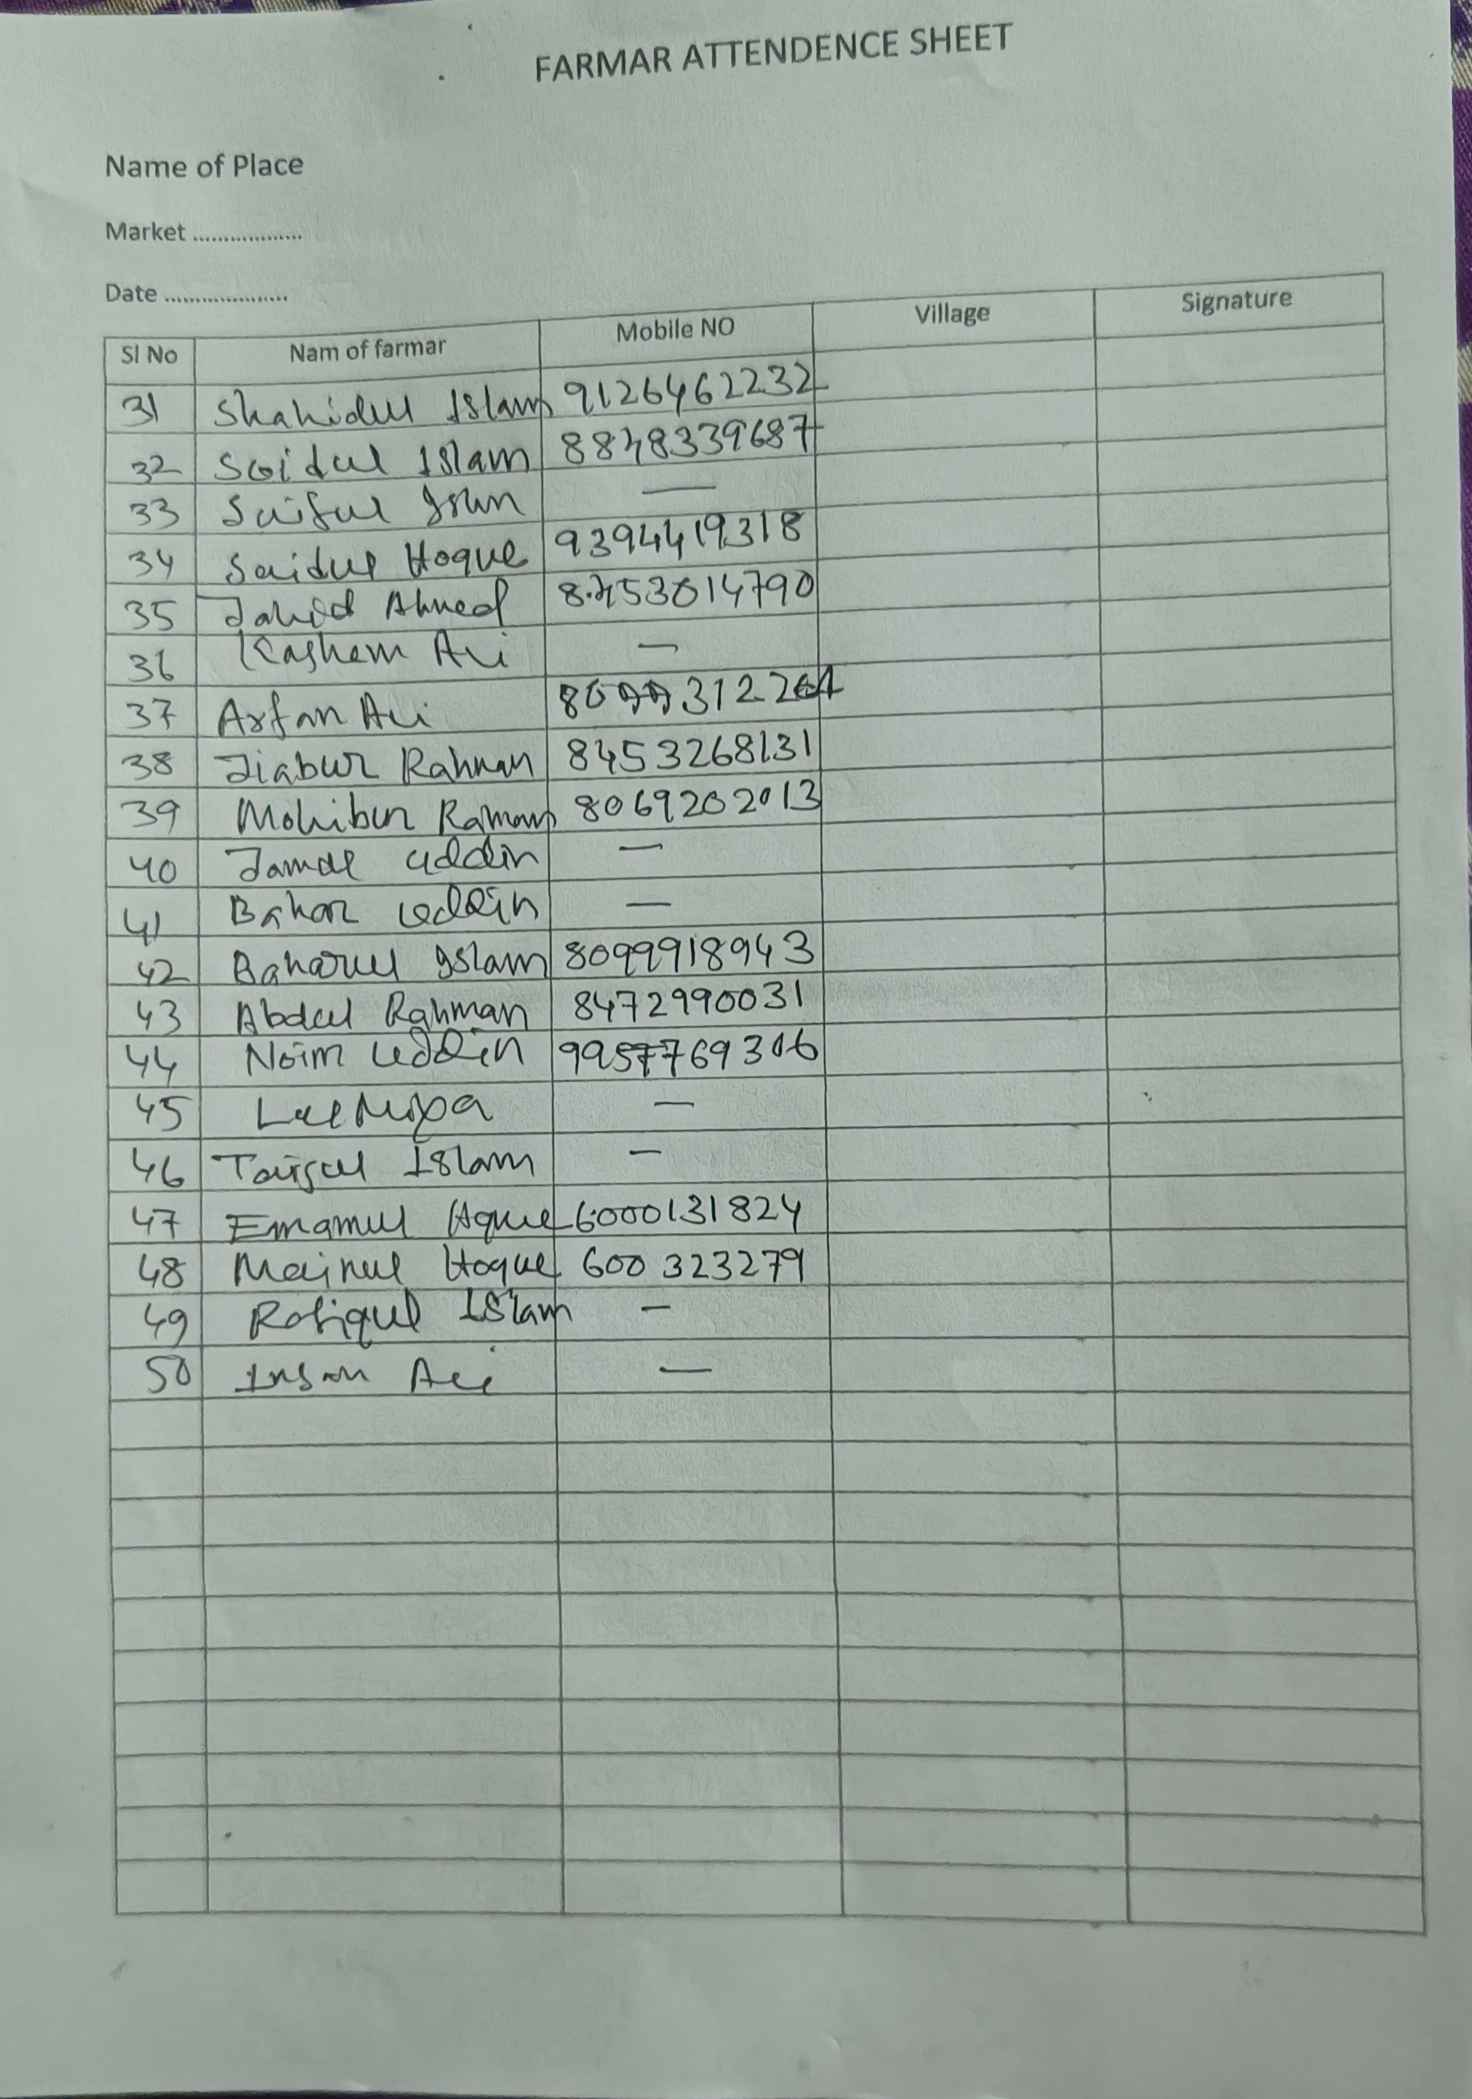 FARMAR ATTENDENCE SHEET
Name of Place
Market ..................
Date ....................
Sl No Nam of farmar Mobile NO Village Signature
31 Shahidul Islam 9126462232
32 Soidul Islam 8848339687
33 Saiful
34 Saidul Hoque 9394419318
35 Jahid Ahmed 8453014790
36 Kashem Ali —
37 Arfan Ali
38 Jiabur Rahman 8453268131
39 Mohibur Rahman 8069202013
40 Jamal uddin —
41 Bahar uddin —
42 Baharul Islam 8099918943
43 Abdul Rahman 8472990031
44 Noim uddin 9957769306
45 —
46 Islam —
47 Emamul Hque 6000131824
48 Mainul Hoque 600 323279
49 Rofiqul Islam —
50 Insan Ali —